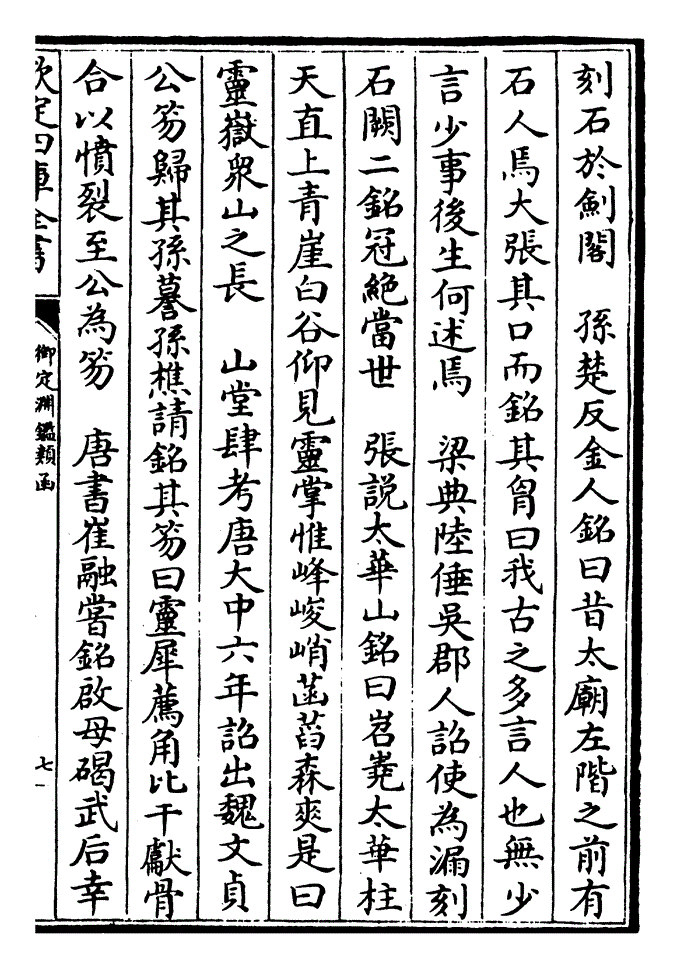 刻石於劍閣　孫楚反金人銘曰昔太廟左階之前有
石人焉大張其口而銘其胷曰我古之多言人也無少
言少事後生何述焉　梁典陸倕吳郡人詔使為漏刻
石闕二銘冠絶當世　張説太華山銘曰岧嶤太華柱
天直上青崖白谷仰見靈掌惟峰峻峭菡萏森爽是曰
靈嶽衆山之長　山堂肆考唐大中六年詔出魏文貞
公笏歸其孫謩孫樵請銘其笏曰靈犀薦角比干獻骨
合以憤裂至公為笏　唐書崔融嘗銘啟母碣武后幸
欽定四庫全書
御定淵鑑類函
七